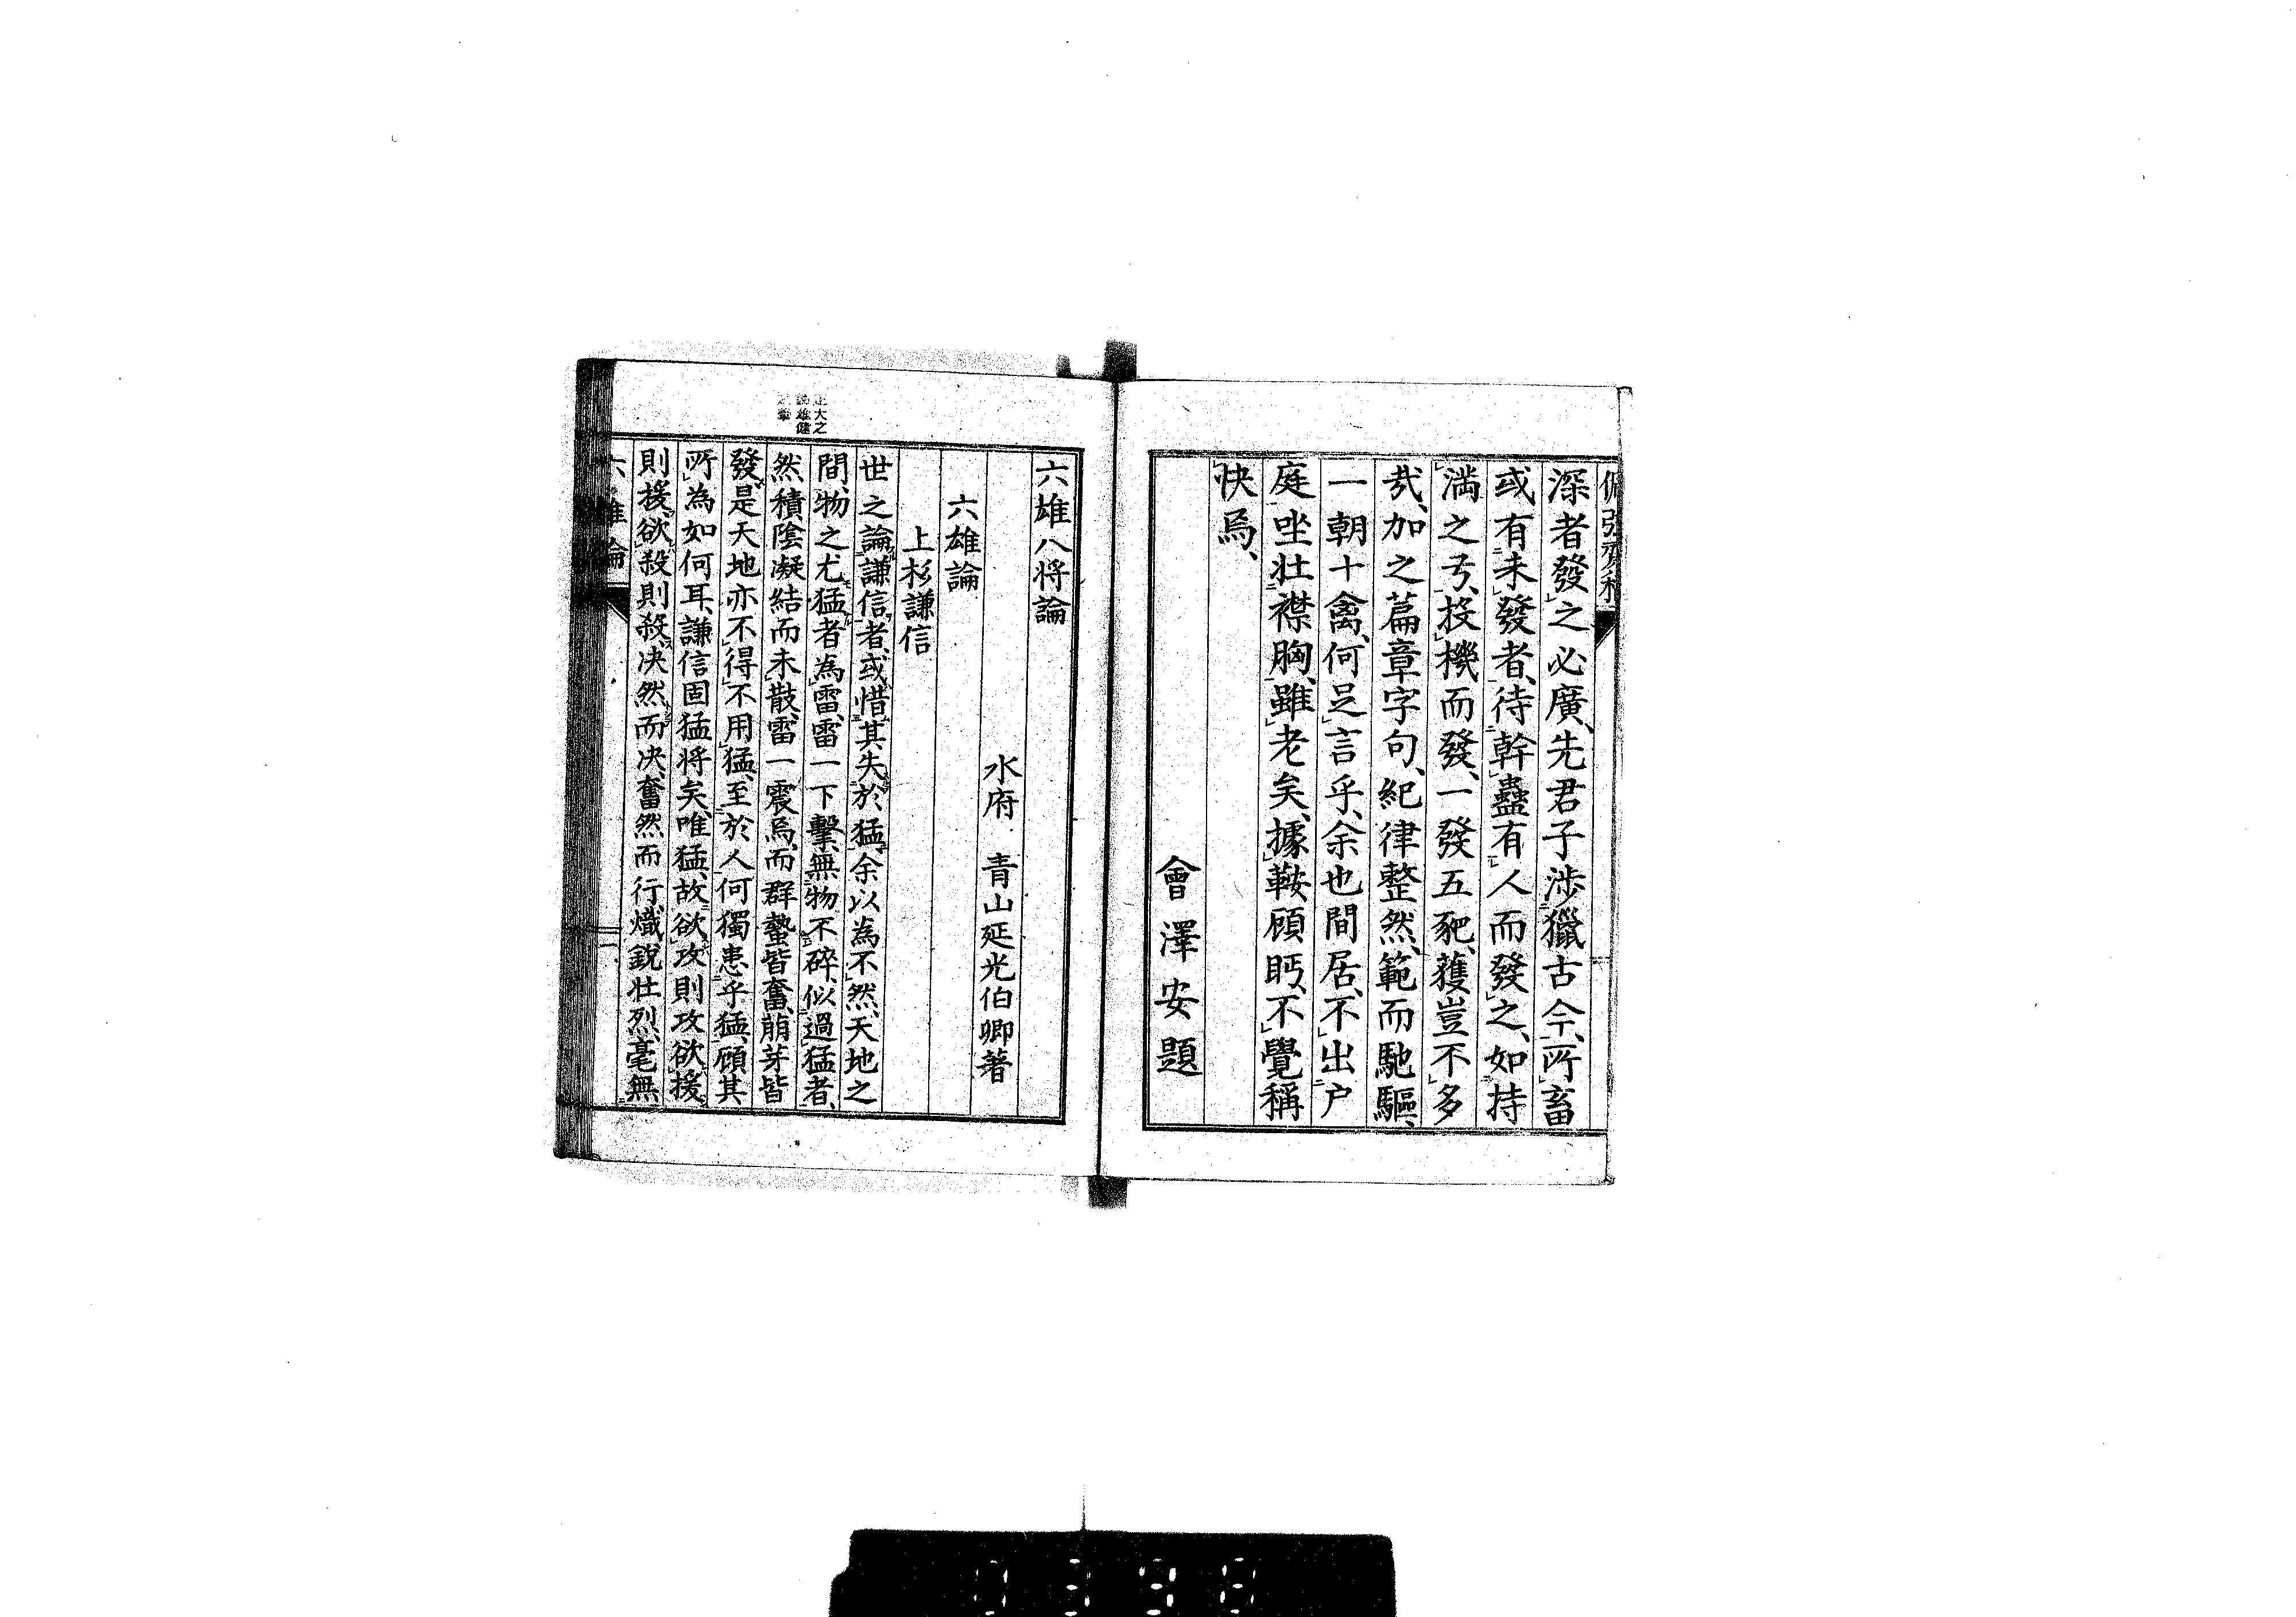 深者發之必廣、先君子渉獵古今、所畜
或有未發者、待幹蠱有人而發之、如持
満之弓、投機而發、一發五豝、獲豈不多
哉、加之篇章字句、紀律整然、範而馳驅、
一朝十禽、何足言乎、余也間居、不出戸
庭、坐壮襟胸、雖老矣、據鞍顧眄、不覺稱
快焉、
會澤安題
六雄八将論
水府 青山延光伯卿著
六雄論
上杉謙信
正大之
論雄健
之筆
世之論謙信者、或惜其失於猛、余以為不然、天地之
間、物之尤猛者為雷、雷一下擊、無物不碎、似過猛者、
然積陰凝結而未散、雷一震焉、而群蟄皆奮、萠芽皆
發、是天地亦不得不用猛、至於人何獨患乎猛、顧其
所為如何耳、謙信固猛将矣、唯猛、故欲攻則攻、欲援
則援、欲殺則殺、决然而决、奮然而行、熾銳壮烈、毫無
六雄論